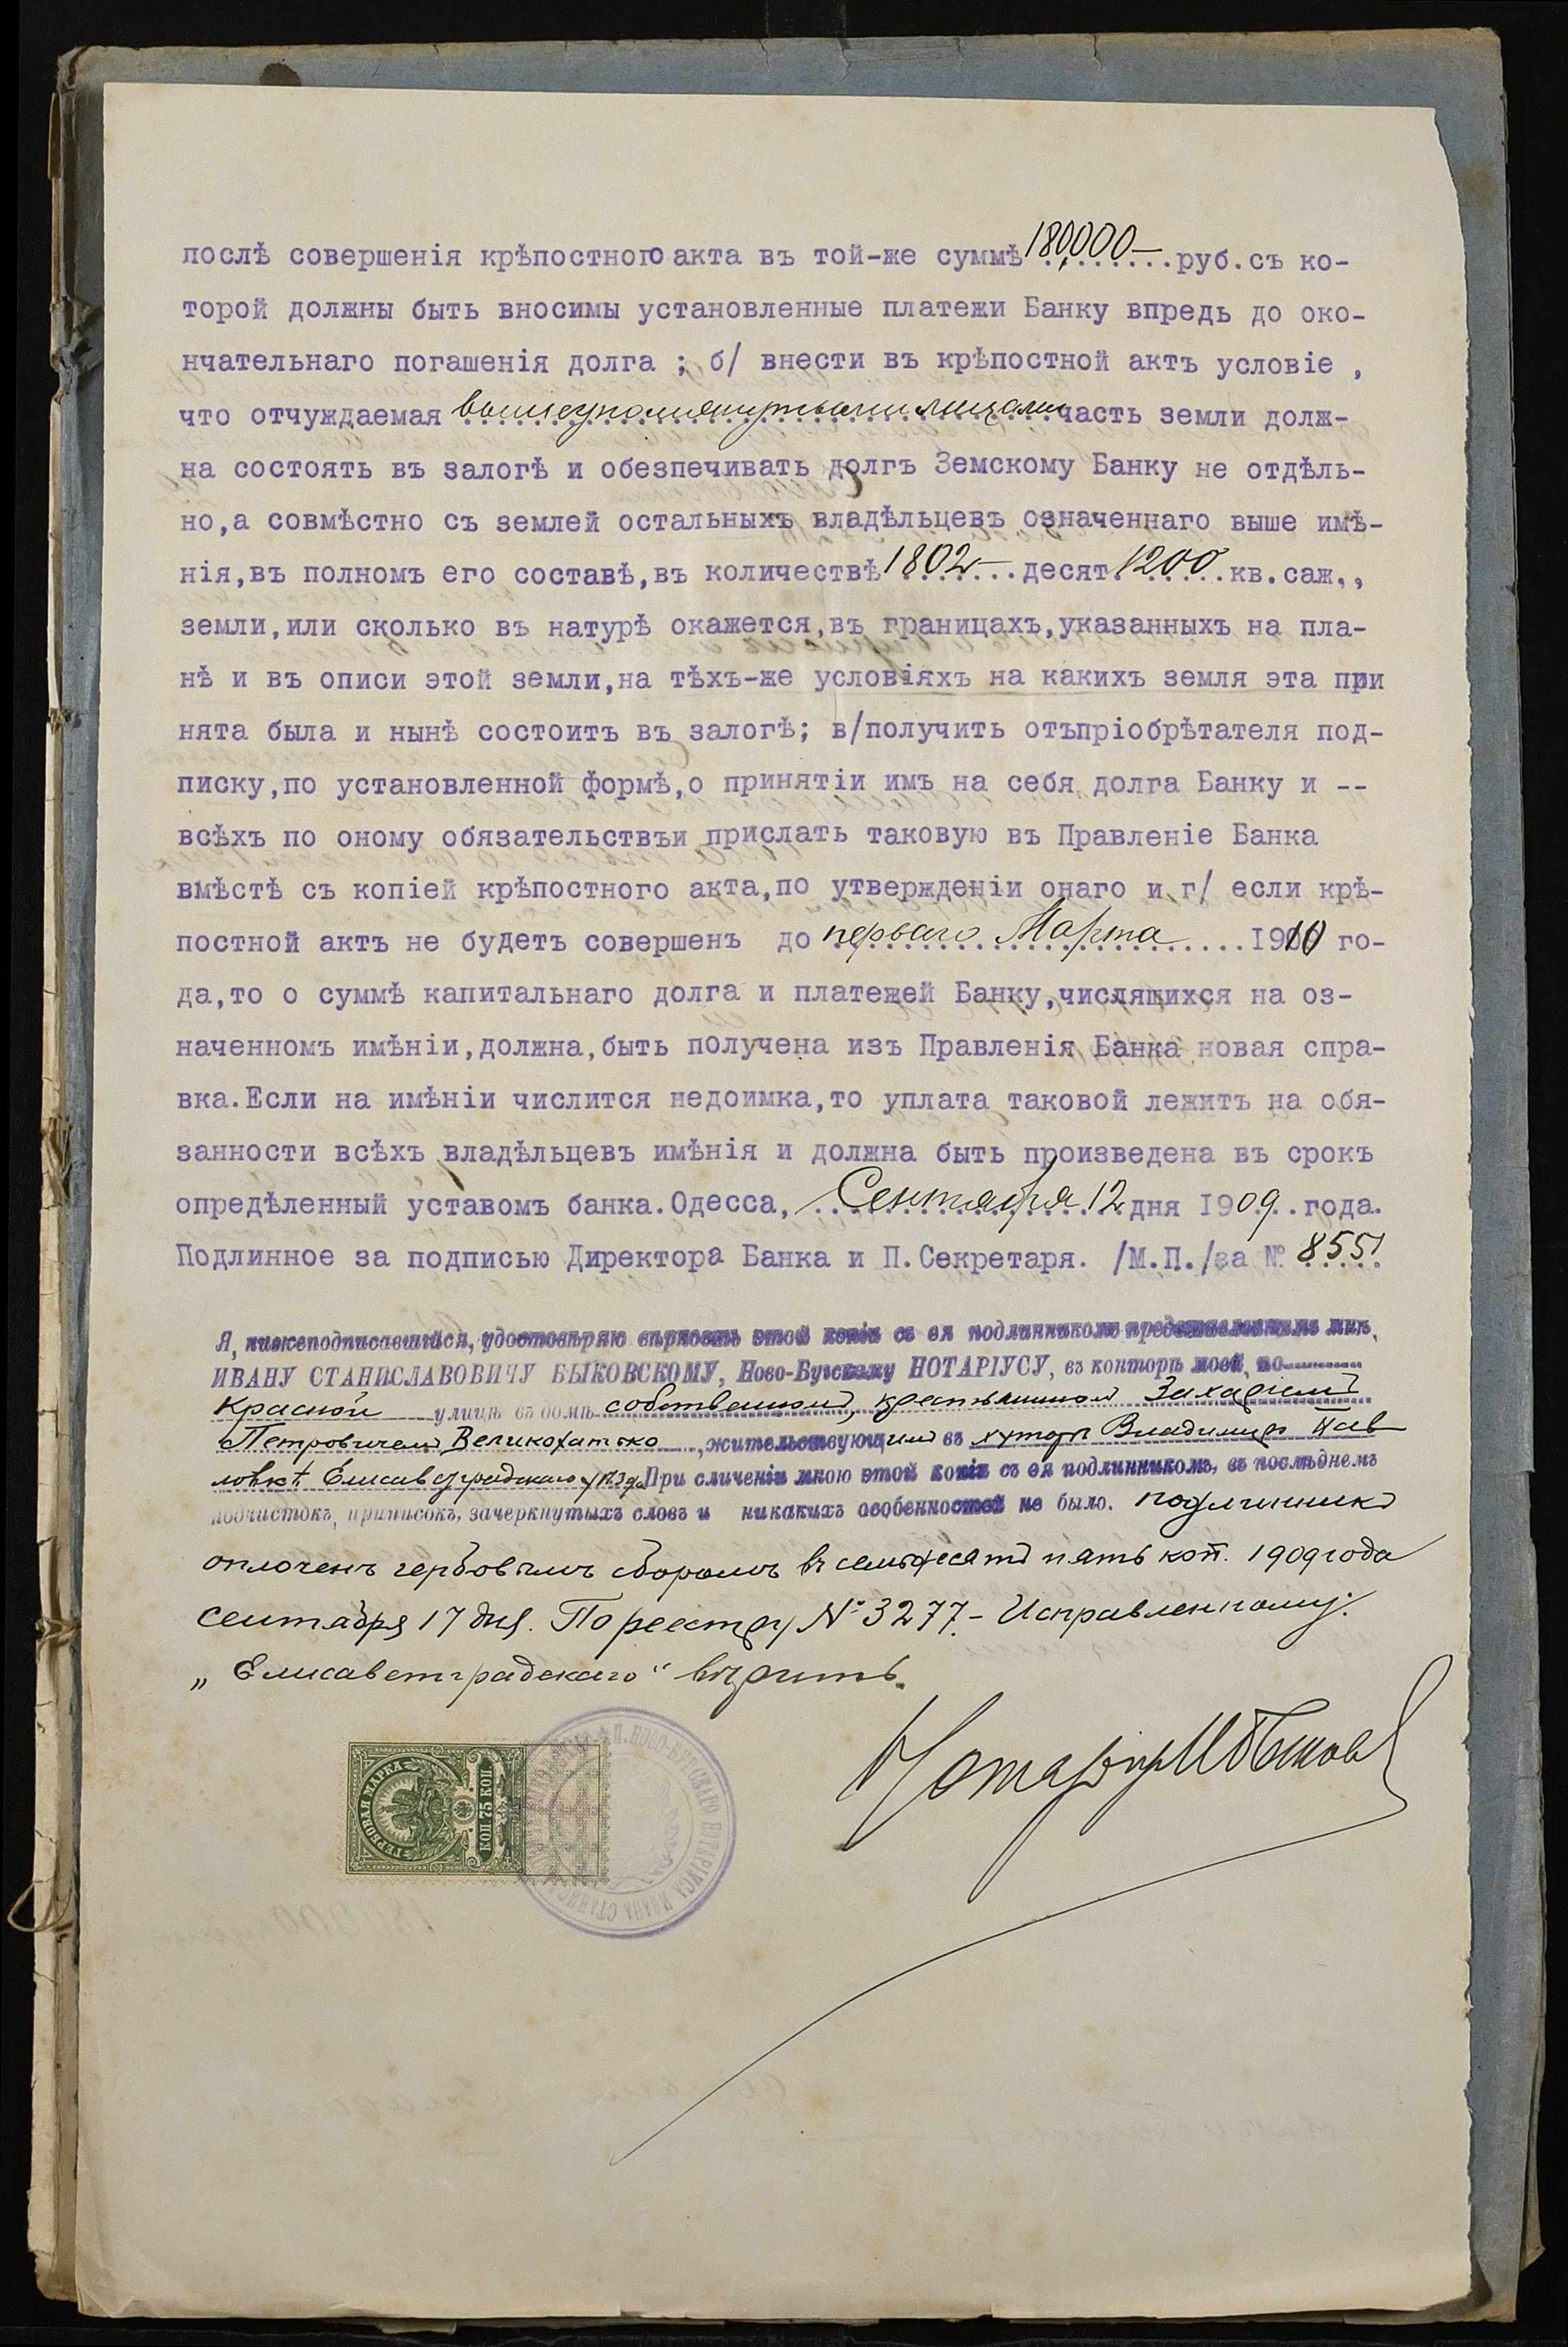 послѣ совершенія крѣпостного акта въ той-же суммѣ 180,000— руб.съ ко-
торой должны быть вносимы установленные платежи Банку впредь до око-
нчательнаго погашенія долга ; б/ внести въ крѣпостной актъ условіе ,
что отчуждаемая вышеупомянутыми лицами часть земли долж-
на состоять въ залогѣ и обезпечивать долгъ Земскому Банку не отдѣль-
но,а совмѣстно съ землей остальныхъ владѣльцевъ означеннаго выше имѣ-
нія,въ полномъ его составѣ,въ количествѣ 1802— десят. 1200 кв.саж.,
земли,или сколько въ натурѣ окажется,въ границахъ,указанныхъ на пла-
нѣ и въ описи этой земли,на тѣхъ-же условіяхъ на какихъ земля эта при
нята была и нынѣ состоитъ въ залогѣ; в/получить отъпріобрѣтателя под-
писку,по установленной формѣ,о принятіи имъ на себя долга Банку и --
всѣхъ по оному обязательствъи прислать таковую въ Правленіе Банка
вмѣстѣ съ копіей крѣпостного акта,по утвержденіи онаго и г/ если крѣ-
постной актъ не будетъ совершенъ до перваго Марта 1910 го-
да,то о суммѣ капитальнаго долга и платежей Банку,числящихся на оз-
наченномъ имѣніи,должна,быть получена изъ Правленія Банка новая спра-
вка.Если на имѣніи числится недоимка,то уплата таковой лежитъ на обя-
занности всѣхъ владѣльцевъ имѣнія и должна быть произведена въ срокъ
опредѣленный уставомъ банка.Одесса, Сентября 12 дня 1909. года.
Подлинное за подписью Директора Банка и П.Секретаря. /М.П./за № 855
Я, нижеподписавшійся, удостовѣряю вѣрность этой копіи съ ея подлинникомъ представленнымъ мнѣ,
ИВАНУ СТАНИСЛАВОВИЧУ БЫКОВСКОМУ, Ново-Бугскому НОТАРІУСУ, въ конторѣ моей, по
Красной улицѣ въ домѣ собственномъ, крестьяниномъ Захаріемъ
Петровичемъ Великохатько, жительствующимъ въ хуторѣ Владимиро Пав
ловкѣ Елисаветградскаго уѣзда При сличеніи мною этой копіи съ ея подлинникомъ, въ послѣднемъ
подчистокъ, приписокъ, зачеркнутыхъ словъ и никакихъ особенностей не было. подлинникъ
оплоченъ гербовымъ сборомъ въ семьдесятъ пять коп. 1909 года
сентября 17 дня. По реестру № 3277.– Исправленному:
„Елисаветградскаго" вѣрить.
Нотаріусъ И Быков
ГЕРБОВАЯ МАРКА
КОП 75 КОП
П. НОВО-БУГСКАГО НОТАРІУСА ИВАНА